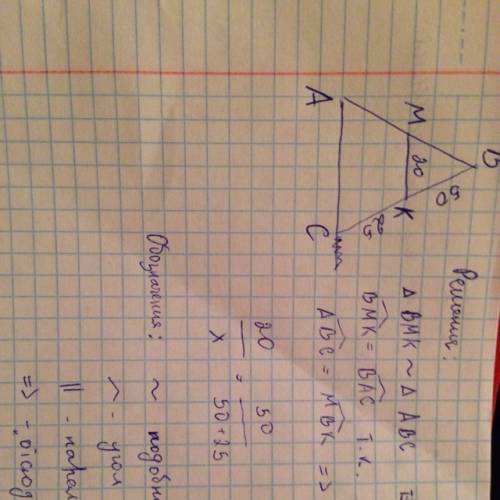 B
50
M 20 K
25
A C
Решения:
Δ BMK ~ Δ ABC
BMK = BAC т.к.
ABC = MBK =>
20 / x = 50 / 50+25
Обозначения: ~ подобн
^ - угол
|| - парал
=>